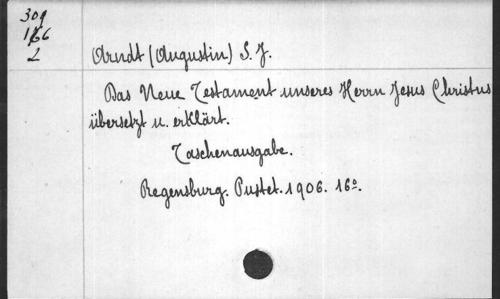 309
166
2
Arndt (Augustin) S. J.
Das Neue Testament unseres Herrn Jesus Christus
übersetzt u. erklärt.
Taschenausgabe.
Regensburg. Pustet. 1906. 16º.